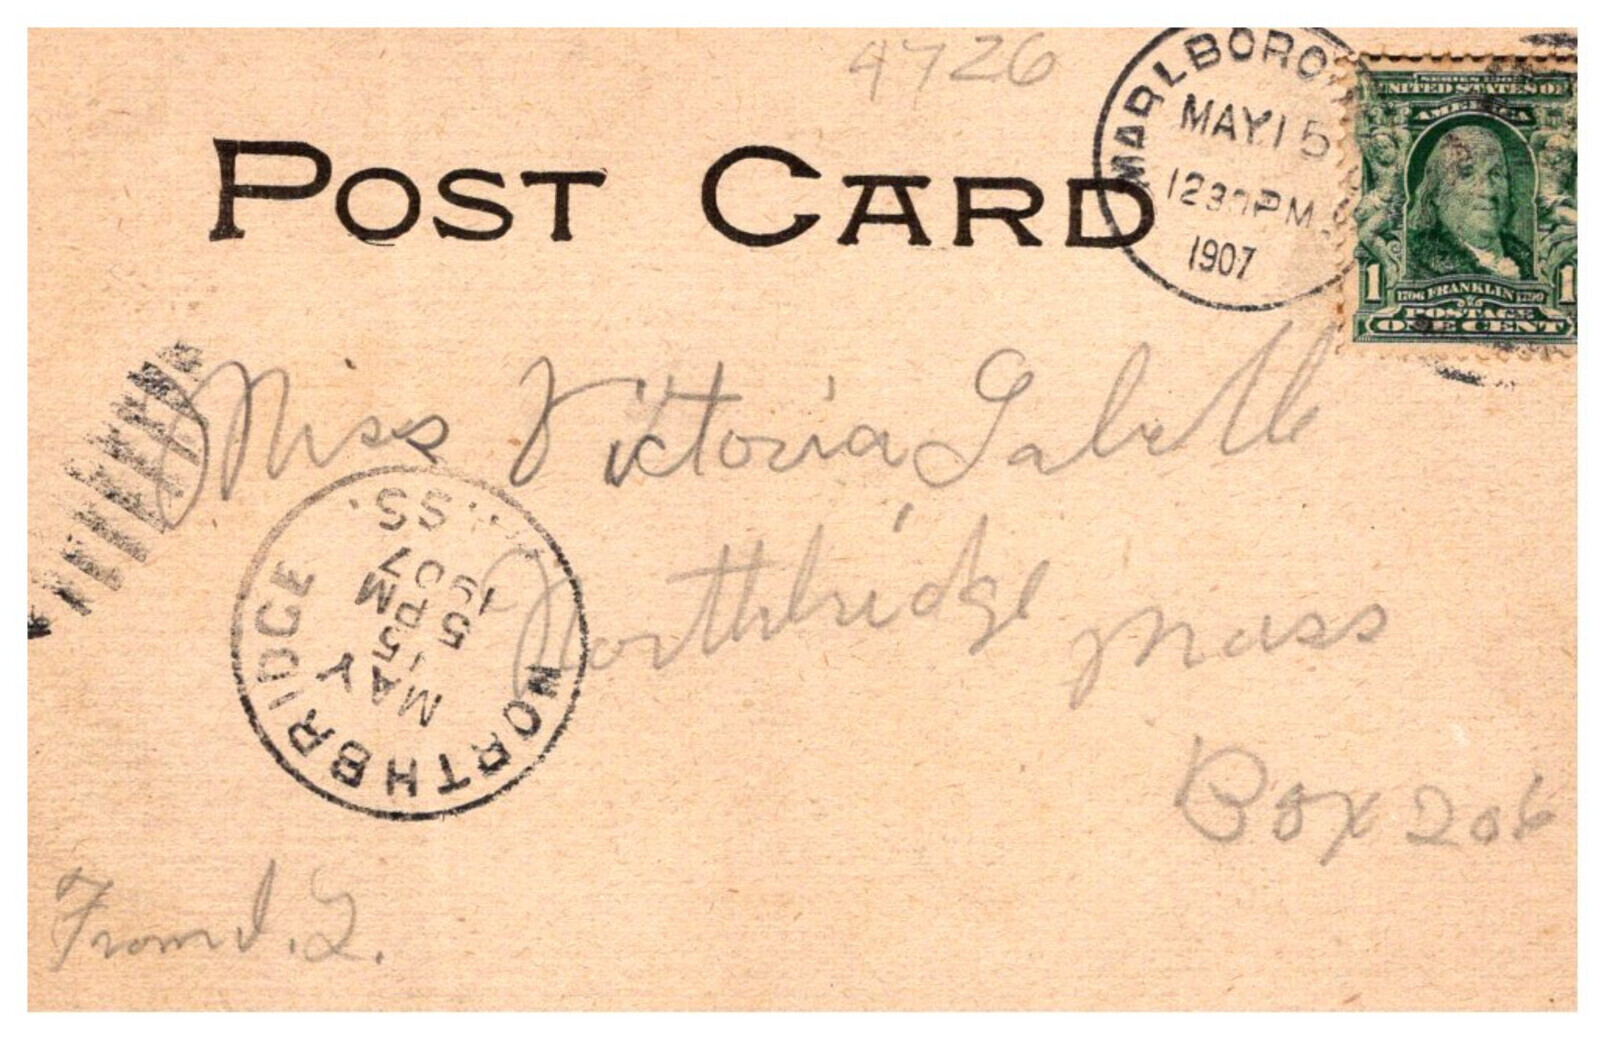 4726
POST CARD
MARLBORO
MAY 15
1230 PM
1907
SERIES 1902
UNITED STATES OF
AMERICA
1 1
1706 FRANKLIN 1790
POSTAGE
ONE CENT
Miss Victoria Labelle
Northbridge Mass
Box 206
NORTHBRIDGE
MAY
15
5 PM
1907
From J. L.